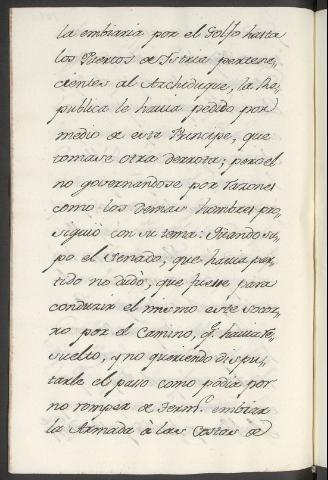 la embiaria por el Golfo hasta
los Puertos de Istria pertene,,
cientes al Archiduque, la Re,,
publica le havia pedido por
medio de este Principe, que
tomase otra derrota; pero el
no governandose por razones
como los demas hombres pro,,
siguiò con su tema: Quando su,,
po el Senado, que havia par,,
tido no dudò, que fuesse para
conduzir el mismo este socor,,
ro por el Camino, q.^e havia re,,
suelto, y no queriendo dispu,,
tarle el paso como podia por
no romper de Term.^s embiar
la Armada à las Costas de